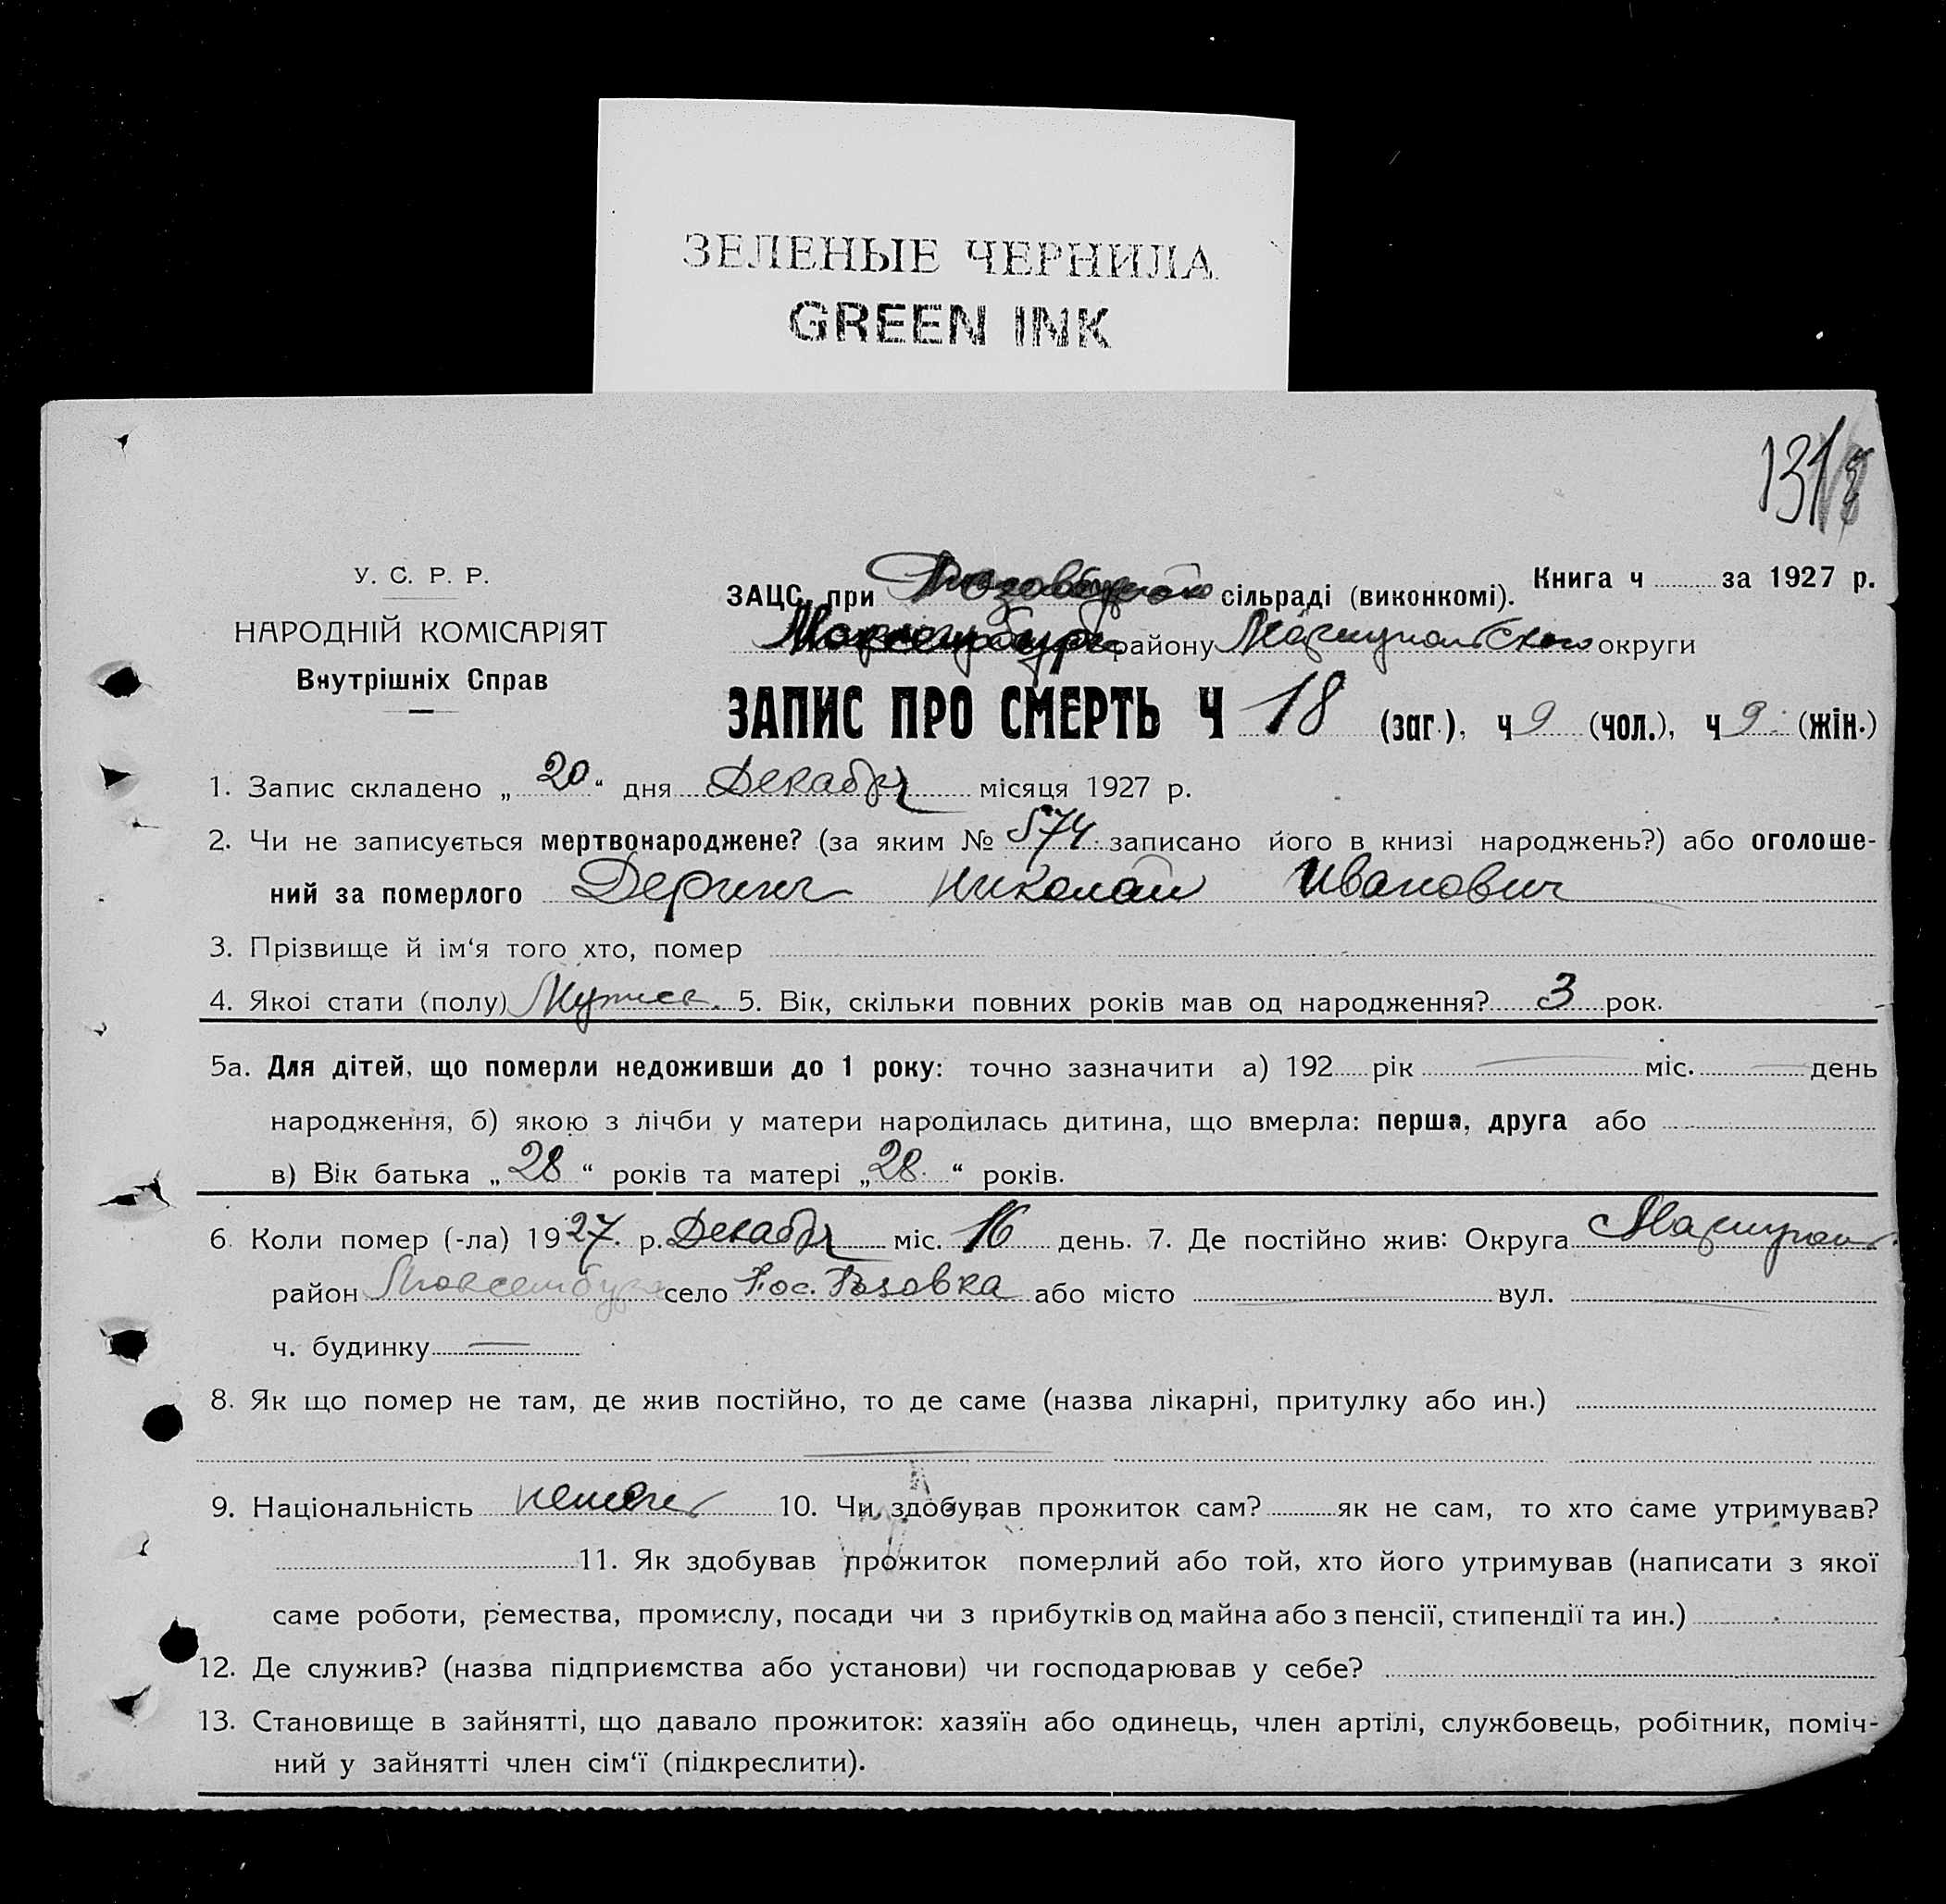 ЗЕЛЕНЫЕ ЧЕРНИЛА
GREEN INK
131
У. С. Р. Р.
НАРОДНІЙ КОМІСАРІЯТ
Внутрішніх Справ
Книга ч за 1927 р.
ЗАЦС при сільраді (виконкомі).
району Мариупольского округи
ЗАПИС ПРО СМЕРТЬ Ч 18 (заг.), ч 9 (чол.), ч 9 (жін.)
1. Запис складено „ 20 “ дня Декабря місяця 1927 р.
2. Чи не записується мертвонароджене? (за яким № 574 записано його в книзі народжень?) або оголоше-
ний за померлого Деринг Николай Иванович
3. Прізвище й ім‘я того хто, помер
4. Якоі стати (полу) Мужиск. 5. Вік, скільки повних років мав од народження? 3 рок.
5а. Для дітей, що померли недоживши до 1 року: точно зазначити а) 192 рік — міс. — день
народження, б) якою з лічби у матери народилась дитина, що вмерла: перша, друга або
в) Вік батька „ 28 “ років та матері „ 28 “ років.
6. Коли помер (-ла) 1927. р. Декабря міс. 16 день. 7. Де постійно жив: Округа Мариупол.
район Люксембург село Пос. Розовка або місто — вул. —
ч. будинку —
8. Як що помер не там, де жив постійно, то де саме (назва лікарні, притулку або ин.)
—
9. Національність немец 10. Чи здобував прожиток сам? як не сам, то хто саме утримував?
11. Як здобував прожиток померлий або той, хто його утримував (написати з якої
саме роботи, ремества, промислу, посади чи з прибутків од майна або з пенсії, стипендії та ин.)
12. Де служив? (назва підприємства або установи) чи господарював у себе?
13. Становище в зайнятті, що давало прожиток: хазяїн або одинець, член артілі, службовець, робітник, поміч-
ний у зайнятті член сім‘ї (підкреслити).